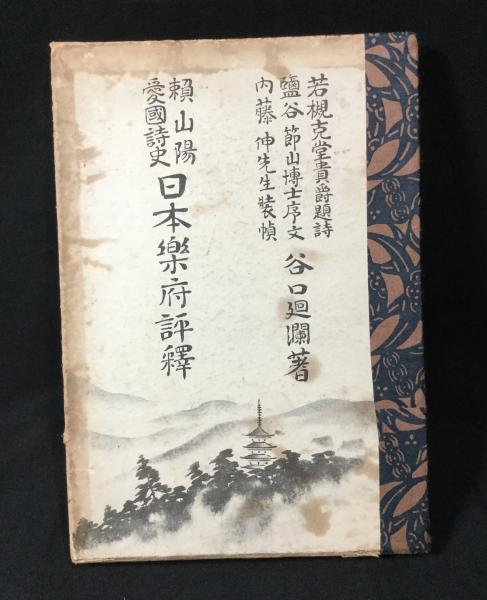 若槻克堂男爵題詩
鹽谷節山博士序文
内藤伸先生裝幀
谷口廻瀾著
賴山陽
愛國詩史
日本樂府評釋